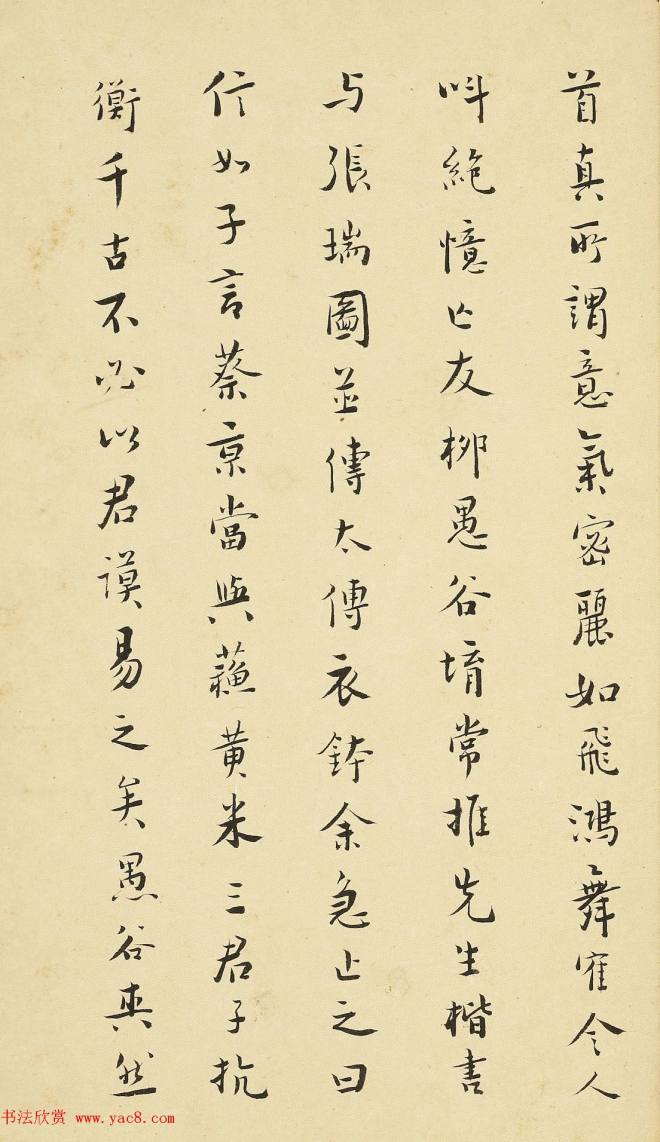 首真所謂意氣密麗如飛鴻舞隺令人
叫絕憶亡友柳愚谷堉常推先生楷書
与張瑞圖並傳太傅衣鉢余急止之曰
信如子言蔡京當與蘓黄米三君子抗
衡千古不必以君謨易之矣愚谷爽然
书法欣赏 www.yac8.com